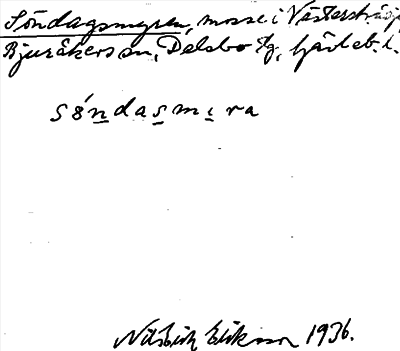 Söndagsmyren, mosse i Västerstråsjö
Bjuråkers sn, Delsbo tg,
söndasmıra
Eriksson 1936.